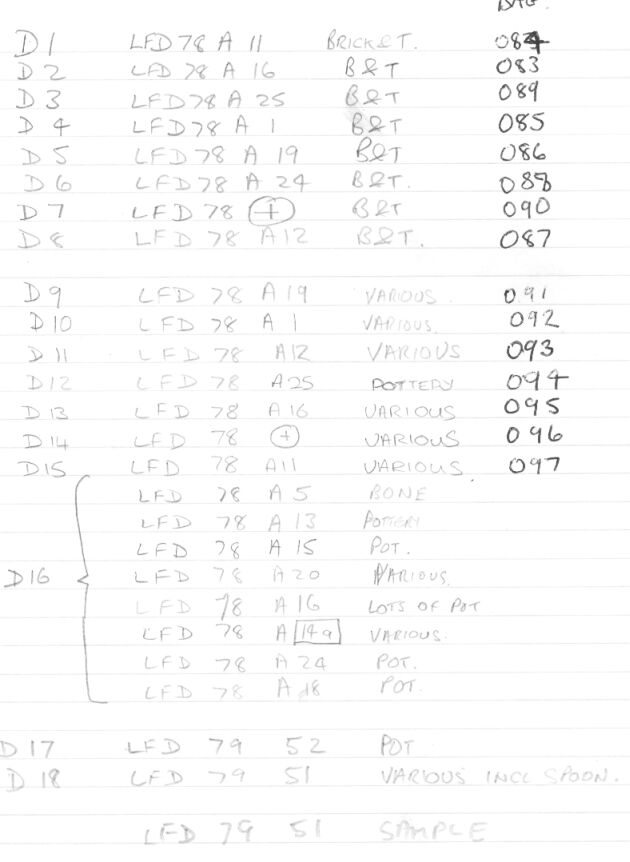 BAG.
D 1 LFD 78 A 11 BRICK & T. 084
D 2 LFD 78 A 16 B & T 083
D 3 LFD 78 A 25 B & T 089
D 4 LFD 78 A 1 B & T 085
D 5 LFD 78 A 19 B & T 086
D 6 LFD 78 A 24 B & T. 088
D 7 LFD 78 + B & T 090
D 8 LFD 78 A12 B & T. 087
D 9 LFD 78 A 19 VARIOUS. 091
D 10 LFD 78 A 1 VARIOUS. 092
D 11 LFD 78 A12 VARIOUS 093
D 12 LFD 78 A25 POTTERY 094
D 13 LFD 78 A16 VARIOUS 095
D 14 LFD 78 + VARIOUS 096
D15 LFD 78 A11 VARIOUS 097
LFD 78 A 5 BONE
LFD 78 A 13 POTTERY
LFD 78 A 15 POT.
D16 LFD 78 A 20 VARIOUS.
LFD 78 A 16 LOTS OF POT
LFD 78 A 14a VARIOUS.
LFD 78 A 24 POT.
LFD 78 A 18 POT.
D 17 LFD 79 52 POT
D 18 LFD 79 51 VARIOUS INCL SPOON.
LFD 79 51 SAMPLE